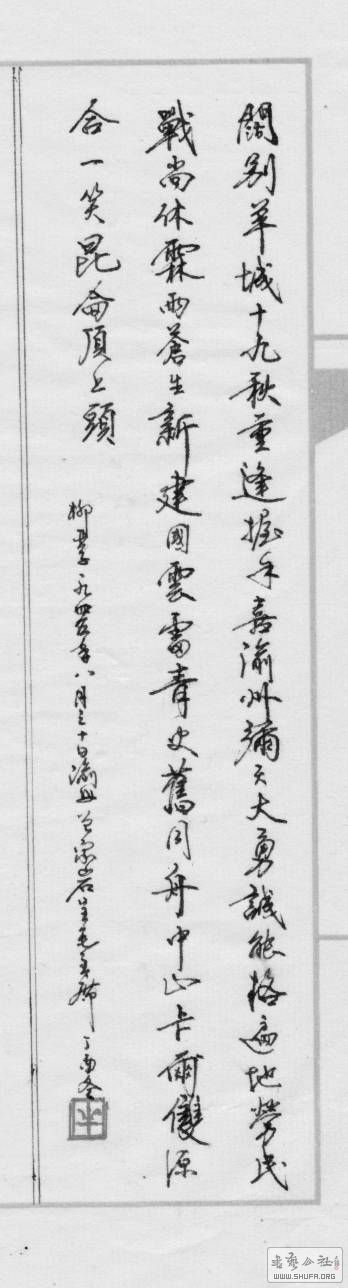 闊别羊城十九秋重逢握手喜渝州彌天大勇誠能格遍地勞民
戰尚休霖雨蒼生新建國雲雷青史舊同舟中山卡爾雙源
合一笑昆侖頂上頭
柳亞子一九四五年八月三十日渝州曾家岩呈毛主席
書藝公社
WWW.SHUFA.ORG